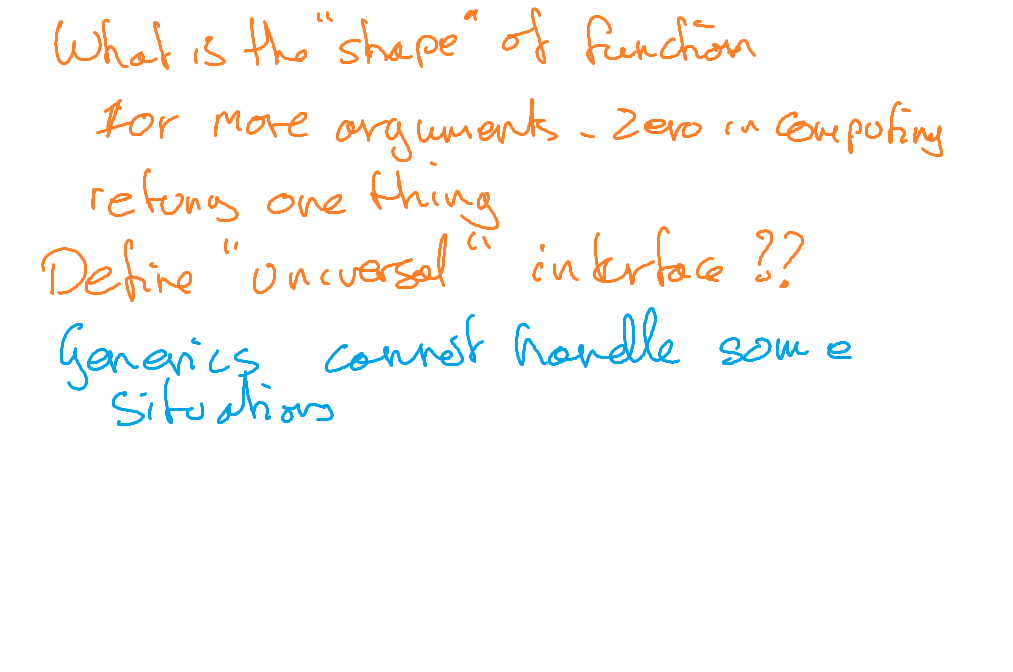 What is the "shape" of function
1 or more arguments - zero in computing
returns one thing
Define "universal" interface ??
Generics cannot handle some
situations